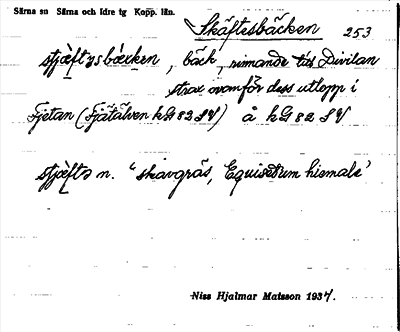 Särna sn Särna och Idre tg Kopp. län.
Skäftesbäcken 253
stjæftysbæcken, bäck, rinnande till Divilan
strax ovanför dess utlopp i
Fjetan (Fjätälven kG 82 SV) å kG 82 SV
stjæfto n. "skavgräs, Equisetum hiemale"
Niss Hjalmar Matsson 1937.